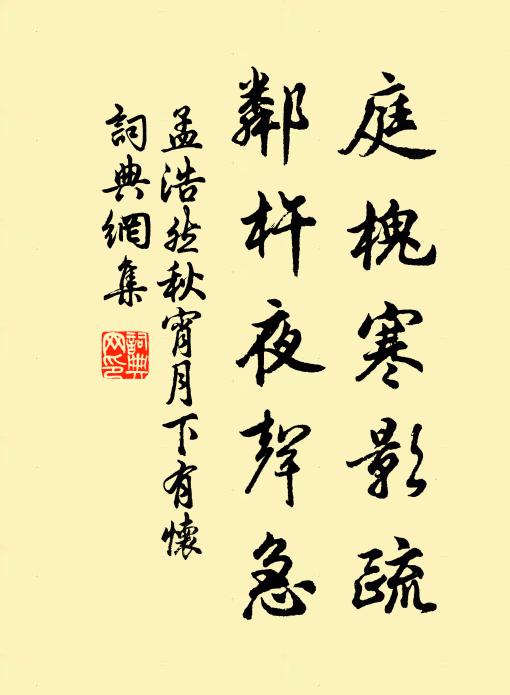 庭槐寒影疏
鄰杵夜聲急
孟浩然秋宵月下有懷
詞典網集
詞典
网印